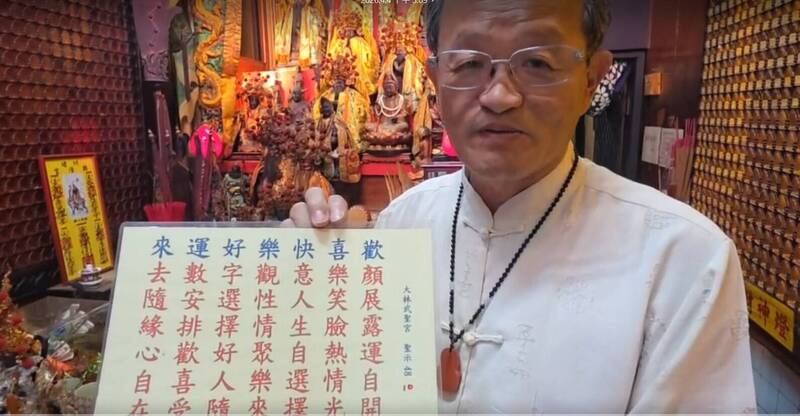 大林武聖宮 聖示 48
歡顏展露運自開
喜樂笑臉熱情光
快意人生自選擇
樂觀性情聚樂來
好字選擇好人隨
運數安排歡喜受
來去隨緣心自在
神燈